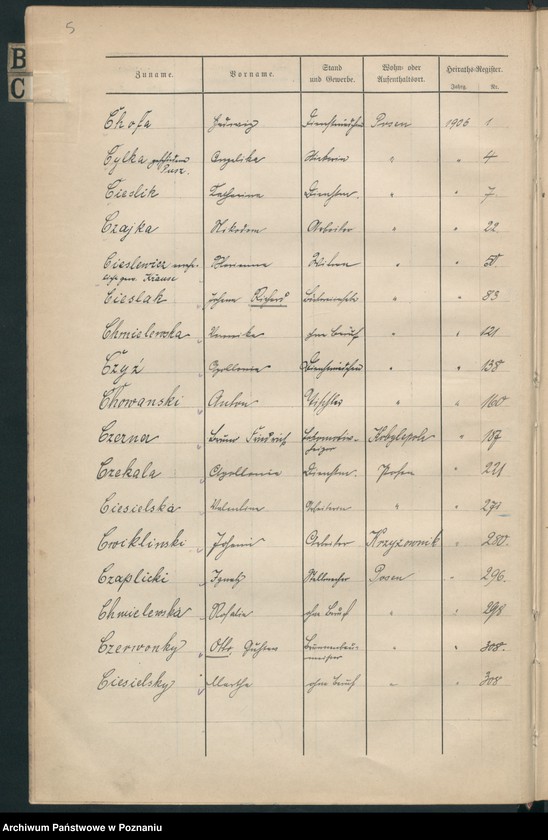 5
B
C
Zuname. Vorname. Stand und Gewerbe. Wohn- oder Aufenthaltsort. Heiraths-Register. Jahrg. Nr.
Chofa Hedwig Dienstmädchen Posen 1906 1
Cylka geschiedene Angelika " " 4
Cieslik Katharina Dienstm. " " 7
Czajka Nikodem Arbeiter " " 22
Cieslewicz Marianna Witwe " " 50
Krause
Cieslak Johann Richard " " 83
Chmielewska Veronika ohne Beruf " " 121
Czyż Apollonia Dienstmädchen " " 135
Chowanski Anton Tischler " " 160
Czerner Bruno Friedrich Lokomotiv- Kobylepole " 187
heizer
Czekala Apollonia Dienstm. Posen " 221
Ciesielska Valentine Arbeiterin " " 271
Cwiklinski Johann Arbeiter Krzyzownik " 280.
Czaplicki Ignatz Stellmacher Posen " 296.
Chmielewska Rosalie ohne Beruf " " 298
Czerwonky Otto, Gustav " " 308.
Ciesielsky Martha ohne Beruf " " 308
Archiwum Państwowe w Poznaniu